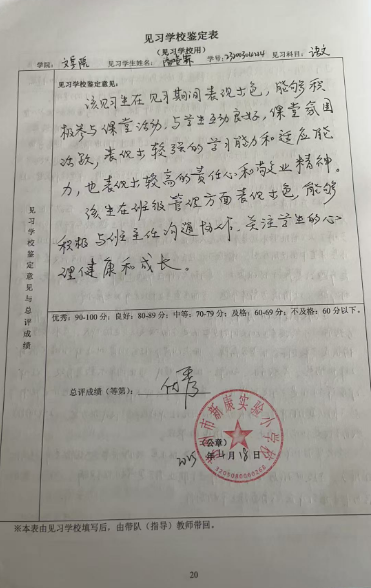 见习学校鉴定表
（见习学校用）
学院：文学院 见习学生姓名： 学号： 见习科目：语文
见习学校鉴定意见：
该见习生在见习期间表现出色，能够积
极参与课堂活动，与学生互动良好，课堂氛围
活跃，表现出较强的学习能力和适应能
力，也表现出较高的责任心和敬业精神。
该生在班级管理方面表现出色，能够
积极与班主任沟通协作，关注学生的心
理健康和成长。
见习学校鉴定意见与总评成绩
优秀：90-100分；良好：80-89分；中等：70-79分；及格：60-69分；不及格：60分以下。
总评成绩（等第）：优秀
市康实验小学
（公章）
年4月18日
※本表由见习学校填写后，由带队（指导）教师带回。
20